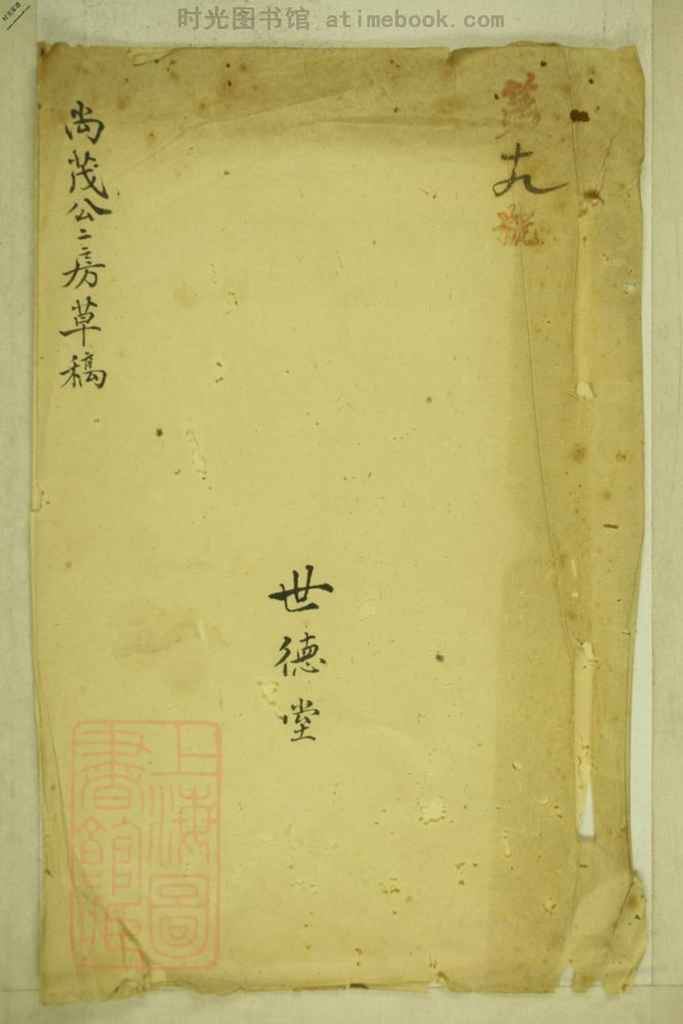 时光图书馆 atimebook.com
第
十九
號
世德堂
尚茂公二房草稿
上海圖
書館藏